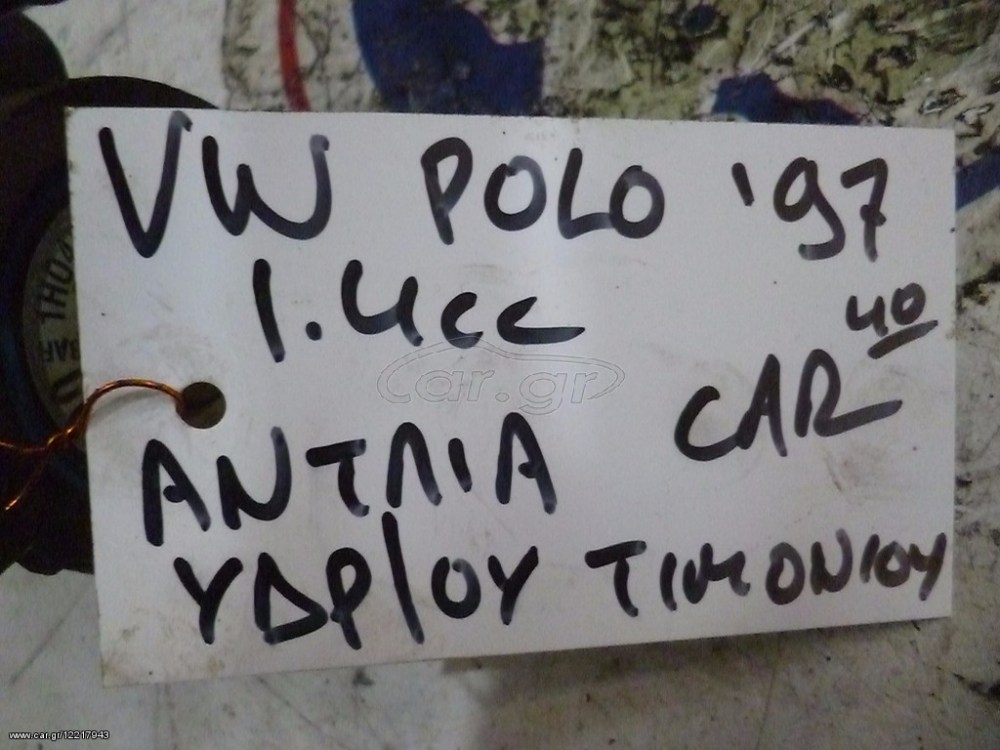 VW POLO '97
1.4cc
40
CAR
ΑΝΤΛΙΑ
ΥΔΡ/ΟΥ ΤΙΜΟΝΙΟΥ
car.gr
www.car.gr/12217943